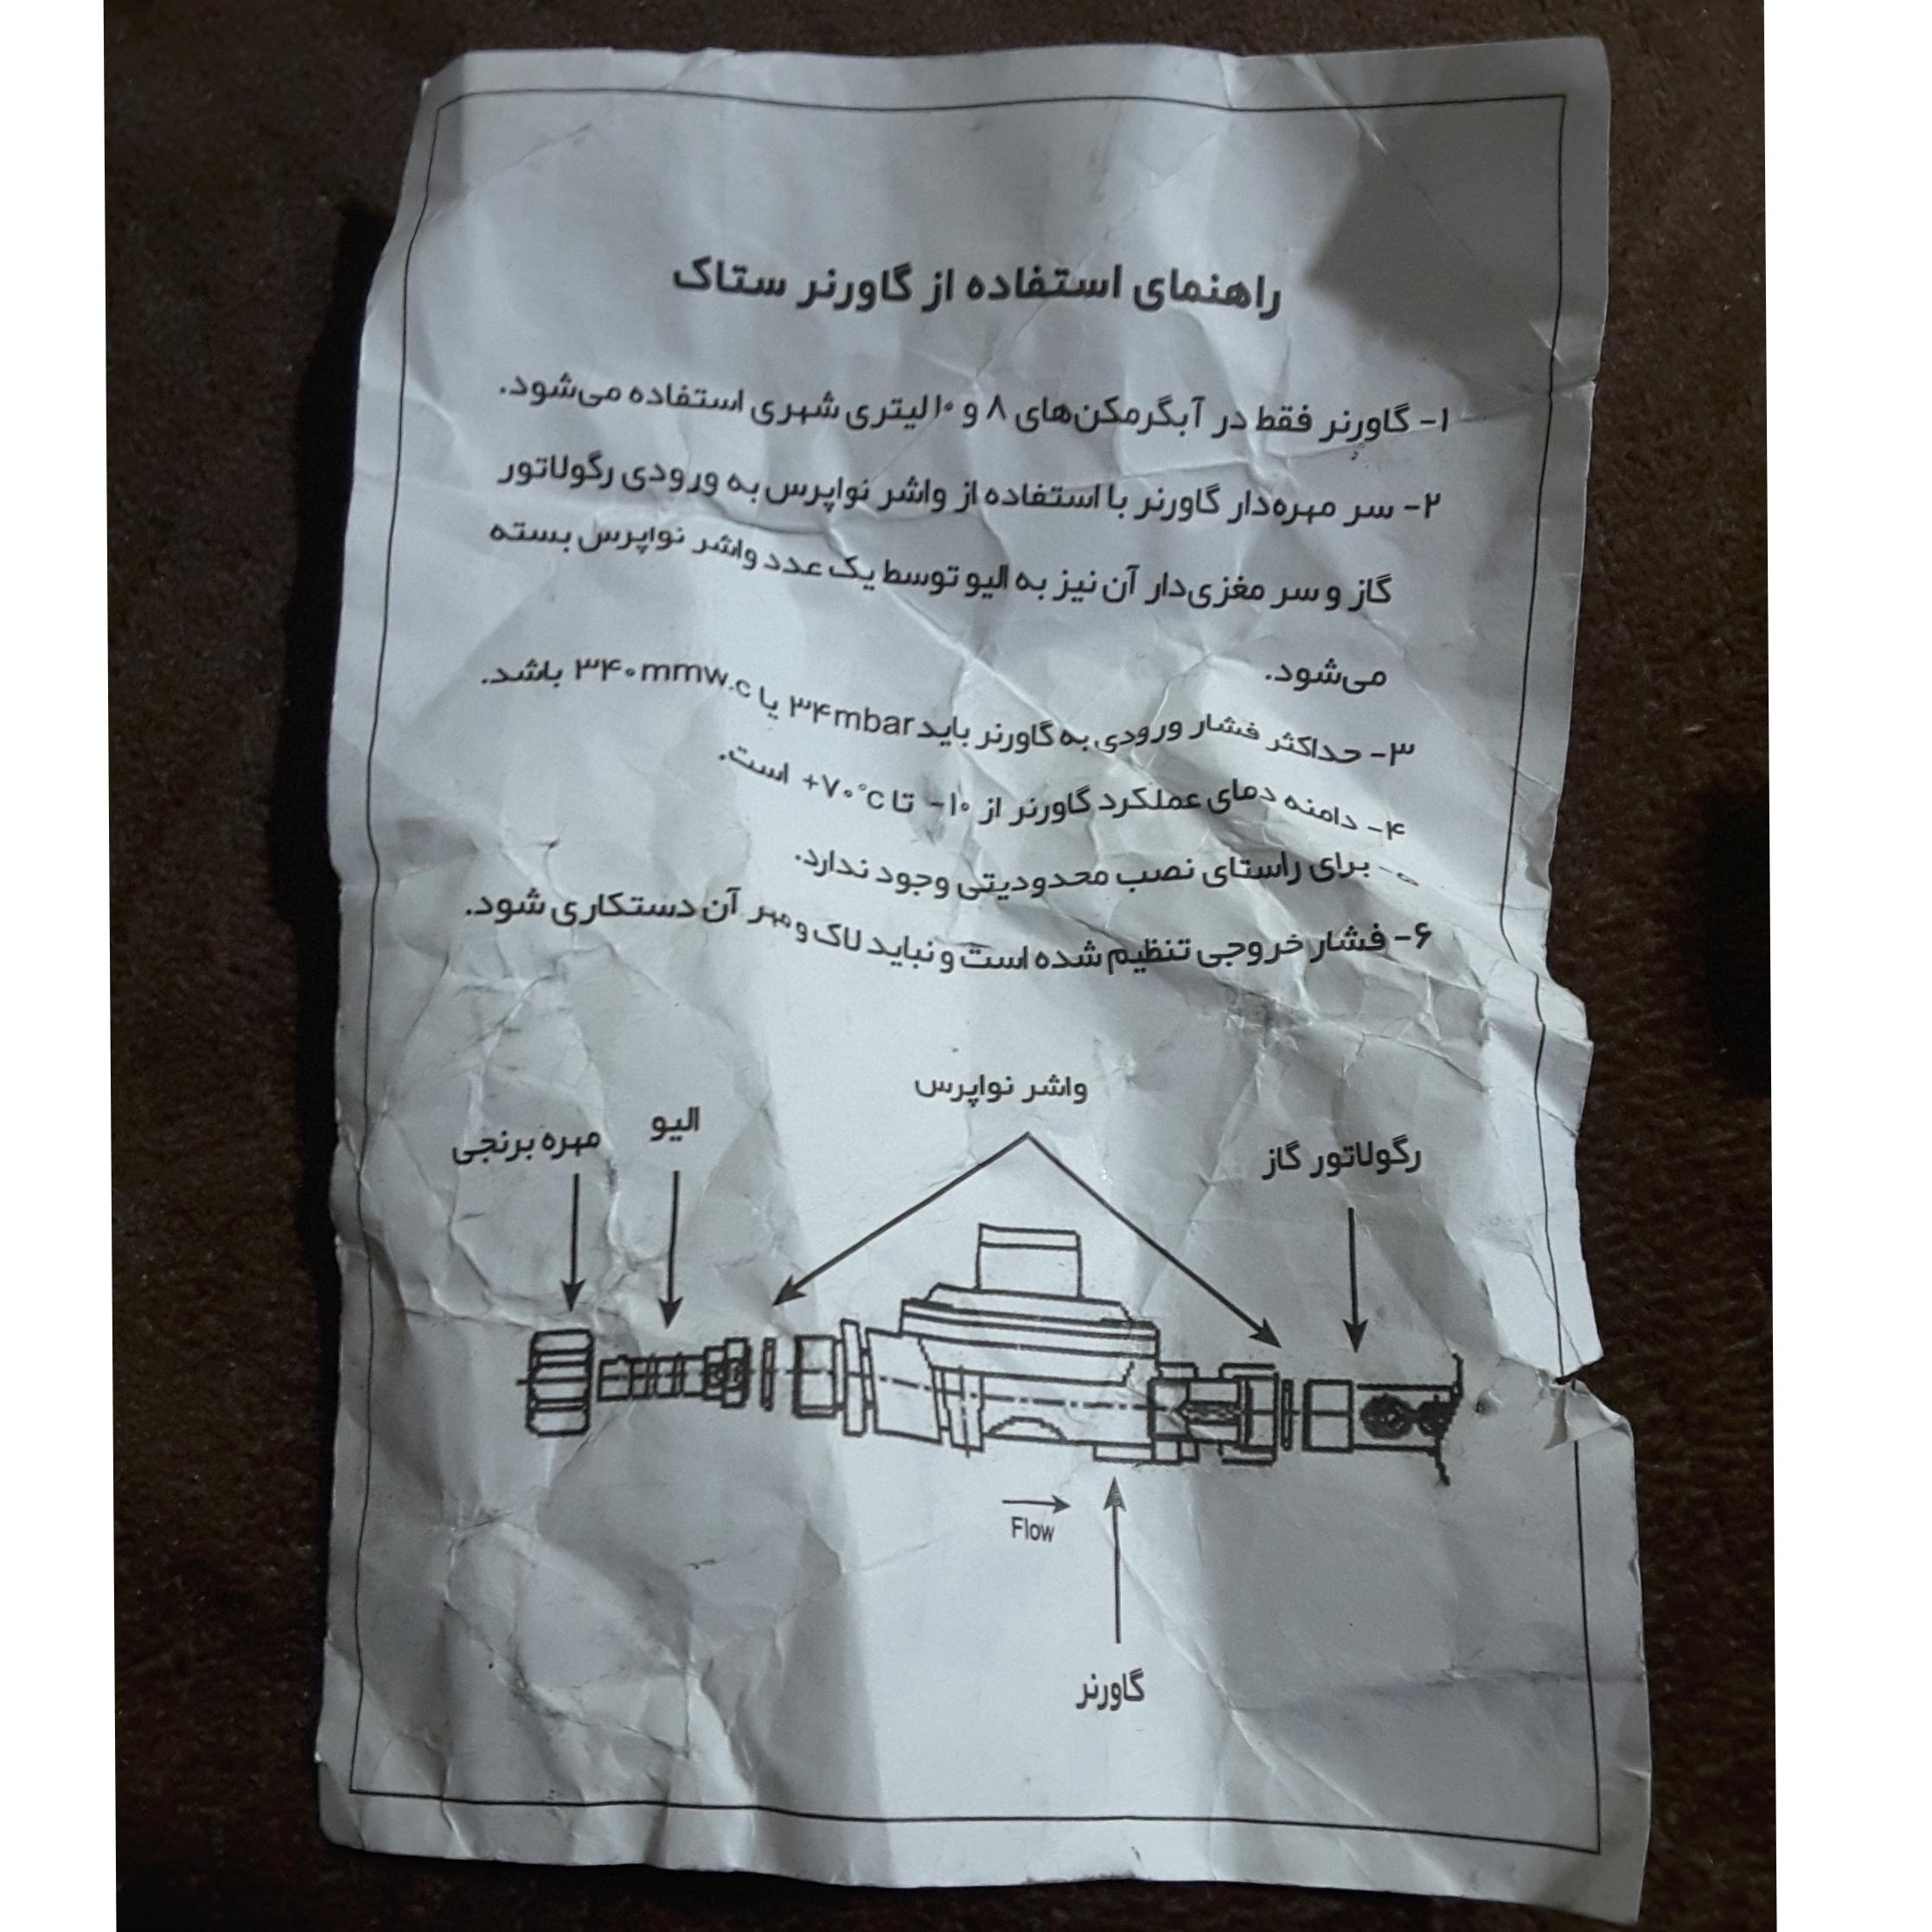 راهنمای استفاده از گاورنر ستاک
۱- گاورنر فقط در آبگرمکن‌های ۸ و ۱۰ لیتری شهری استفاده می‌شود.
۲- سر مهره‌دار گاورنر با استفاده از واشر نواپرس به ورودی رگولاتور
گاز و سر مغزی‌دار آن نیز به الیو توسط یک عدد واشر نواپرس بسته
می‌شود.
۳- حداکثر فشار ورودی به گاورنر باید ۳۴mbar یا ۳۴۰mmw.c باشد.
۴- دامنه دمای عملکرد گاورنر از ۱۰- تا ۷۰°c+ است.
۵- برای راستای نصب محدودیتی وجود ندارد.
۶- فشار خروجی تنظیم شده است و نباید لاک و مهر آن دستکاری شود.
واشر نواپرس
رگولاتور گاز
الیو
مهره برنجی
Flow
گاورنر